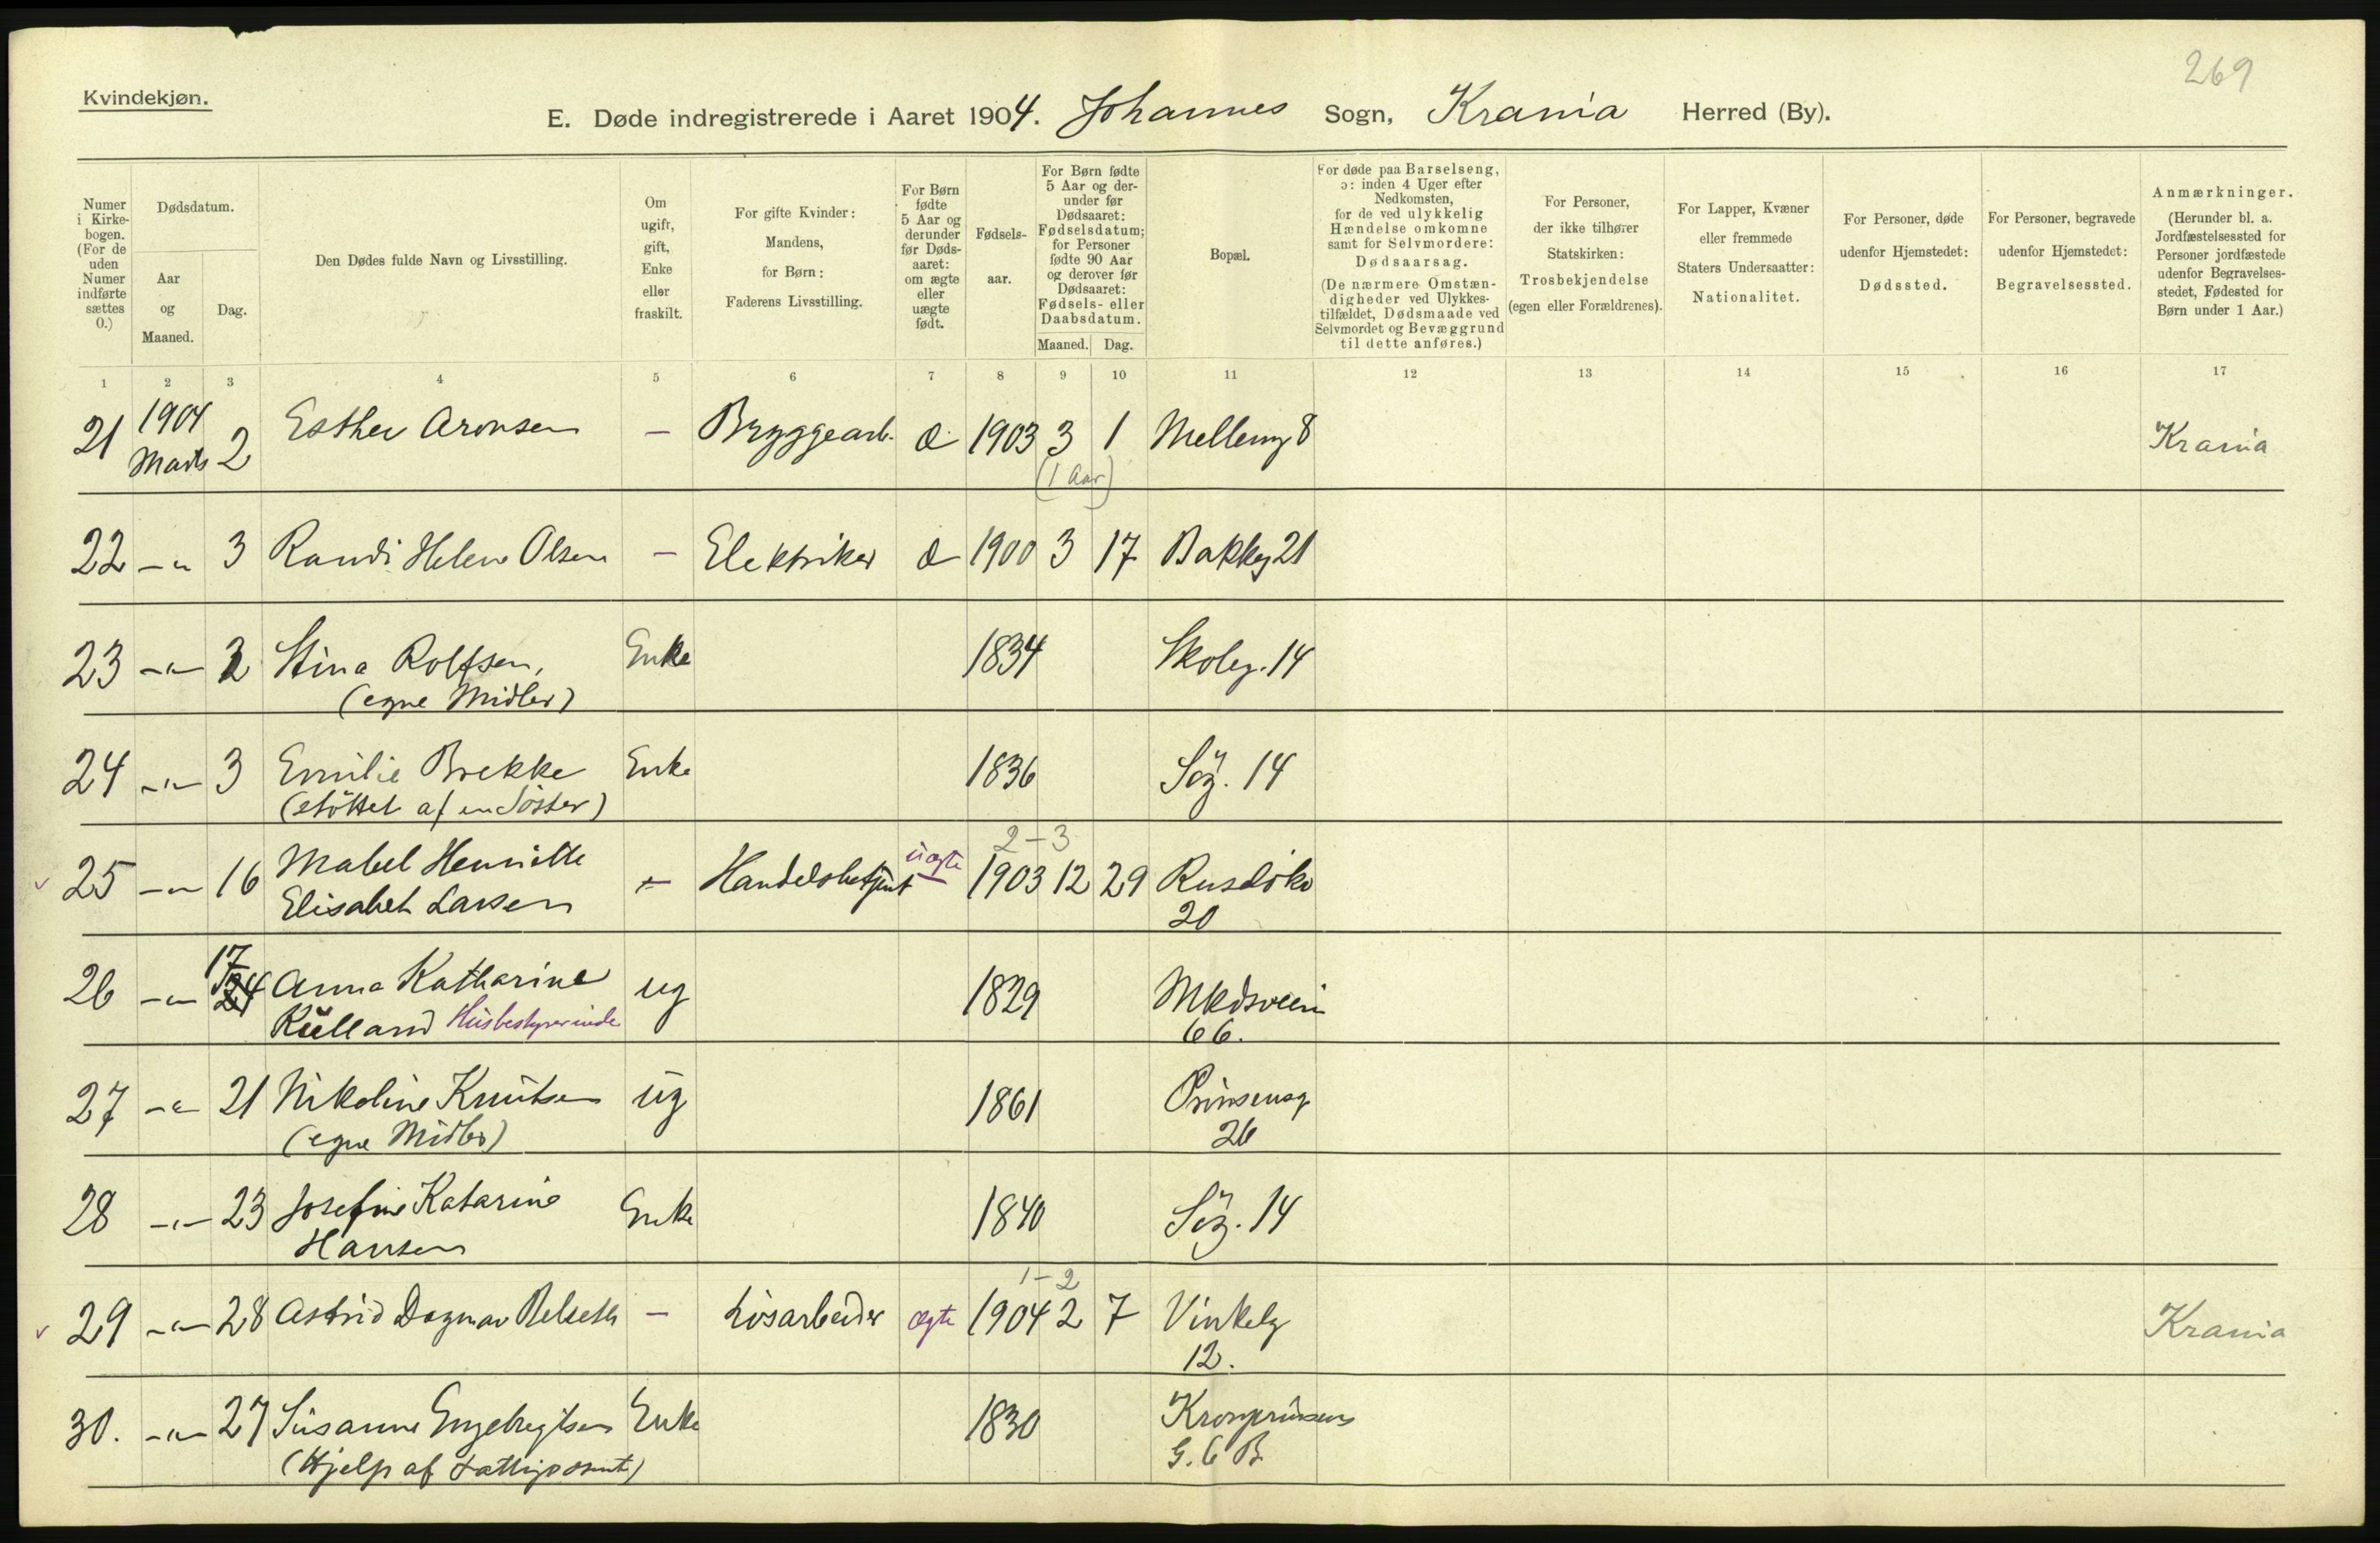 269
Kvindekjøn.
E. Døde indregistrerede i Aaret 1904. Johannes Sogn, Krania Herred (By).
Numer i Kirke-bogen. (For de uden Numer indførte sættes 0.)
Dødsdatum.
Aar og Maaned.
Dag.
Den Dødes fulde Navn og Livsstilling.
Om ugift, gift, Enke eller fraskilt.
For gifte Kvinder: Mandens, for Børn: Faderens Livsstilling.
For Børn fødte 5 Aar og derunder før Døds-aaret: om ægte eller uægte født.
Fødsels-aar.
For Børn fødte 5 Aar og der-under før Dødsaaret: Fødselsdatum; for Personer fødte 90 Aar og derover før Dødsaaret: Fødsels- eller Daabsdatum.
Maaned. Dag.
Bopæl.
For døde paa Barselseng, ɔ: inden 4 Uger efter Nedkomsten, for de ved ulykkelig Hændelse omkomne samt for Selvmordere: Dødsaarsag. (De nærmere Omstæn-digheder ved Ulykkes-tilfældet, Dødsmaade ved Selvmordet og Bevæggrund til dette anføres.)
For Personer, der ikke tilhører Statskirken: Trosbekjendelse (egen eller Forældrenes).
For Lapper, Kvæner eller fremmede Staters Undersaatter: Nationalitet.
For Personer, døde udenfor Hjemstedet: Dødssted.
For Personer, begravede udenfor Hjemstedet: Begravelsessted.
Anmærkninger. (Herunder bl. a. Jordfæstelsessted for Personer jordfæstede udenfor Begravelses-stedet, Fødested for Børn under 1 Aar.)
1 2 3 4 5 6 7 8 9 10 11 12 13 14 15 16 17
21 1904 Marts 2 Esther Aronsen — Bryggearb. æ 1903 3 1 Melleng 8 Krania
(1 Aar)
22 -"- 3 Randi Helene Olsen — Elektriker æ 1900 3 17 Bakkeg 21
23 -"- 2 Stina Rolfsen, Enke 1834 Skoleg. 14
(egne Midler)
24 -"- 3 Emilie Brekke Enke 1836 Søg. 14
(støttet af en Søster)
2-3
25 -"- 16 Mabel Henriette — Handelsbetjent uægte 1903 12 29 Rusløkv
Elisabet Larsen 20
17
26 -"- 24 Anna Katharine ug 1829
Külland Husbestyrerinde 66.
27 -"- 21 Nikoline Knutsen ug 1861 Prinsensg
(egne Midler) 26
28 -"- 23 Josefine Katarine Enke 1840 Søg. 14
Hansen
1-2
29 -"- 28 Astrid Dagmar Belseth — Løsarbeider ægte 1904 2 7 Vinkelg Krania
12.
30. -"- 27 Susanne Engebregtsen Enke 1830 Kronprinsens
(Hjelp af Fattigvæsnet) G. 6 B